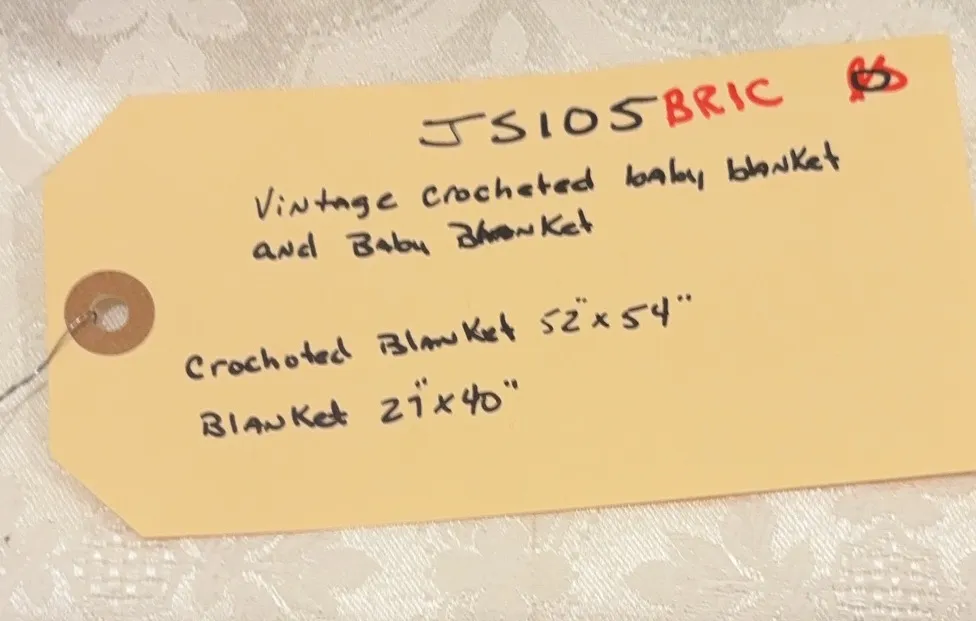 JS105 BRIC
Vintage crocheted baby blanket
and Baby Blanket
Crochoted Blanket 52"x54"
Blanket 27"x40"